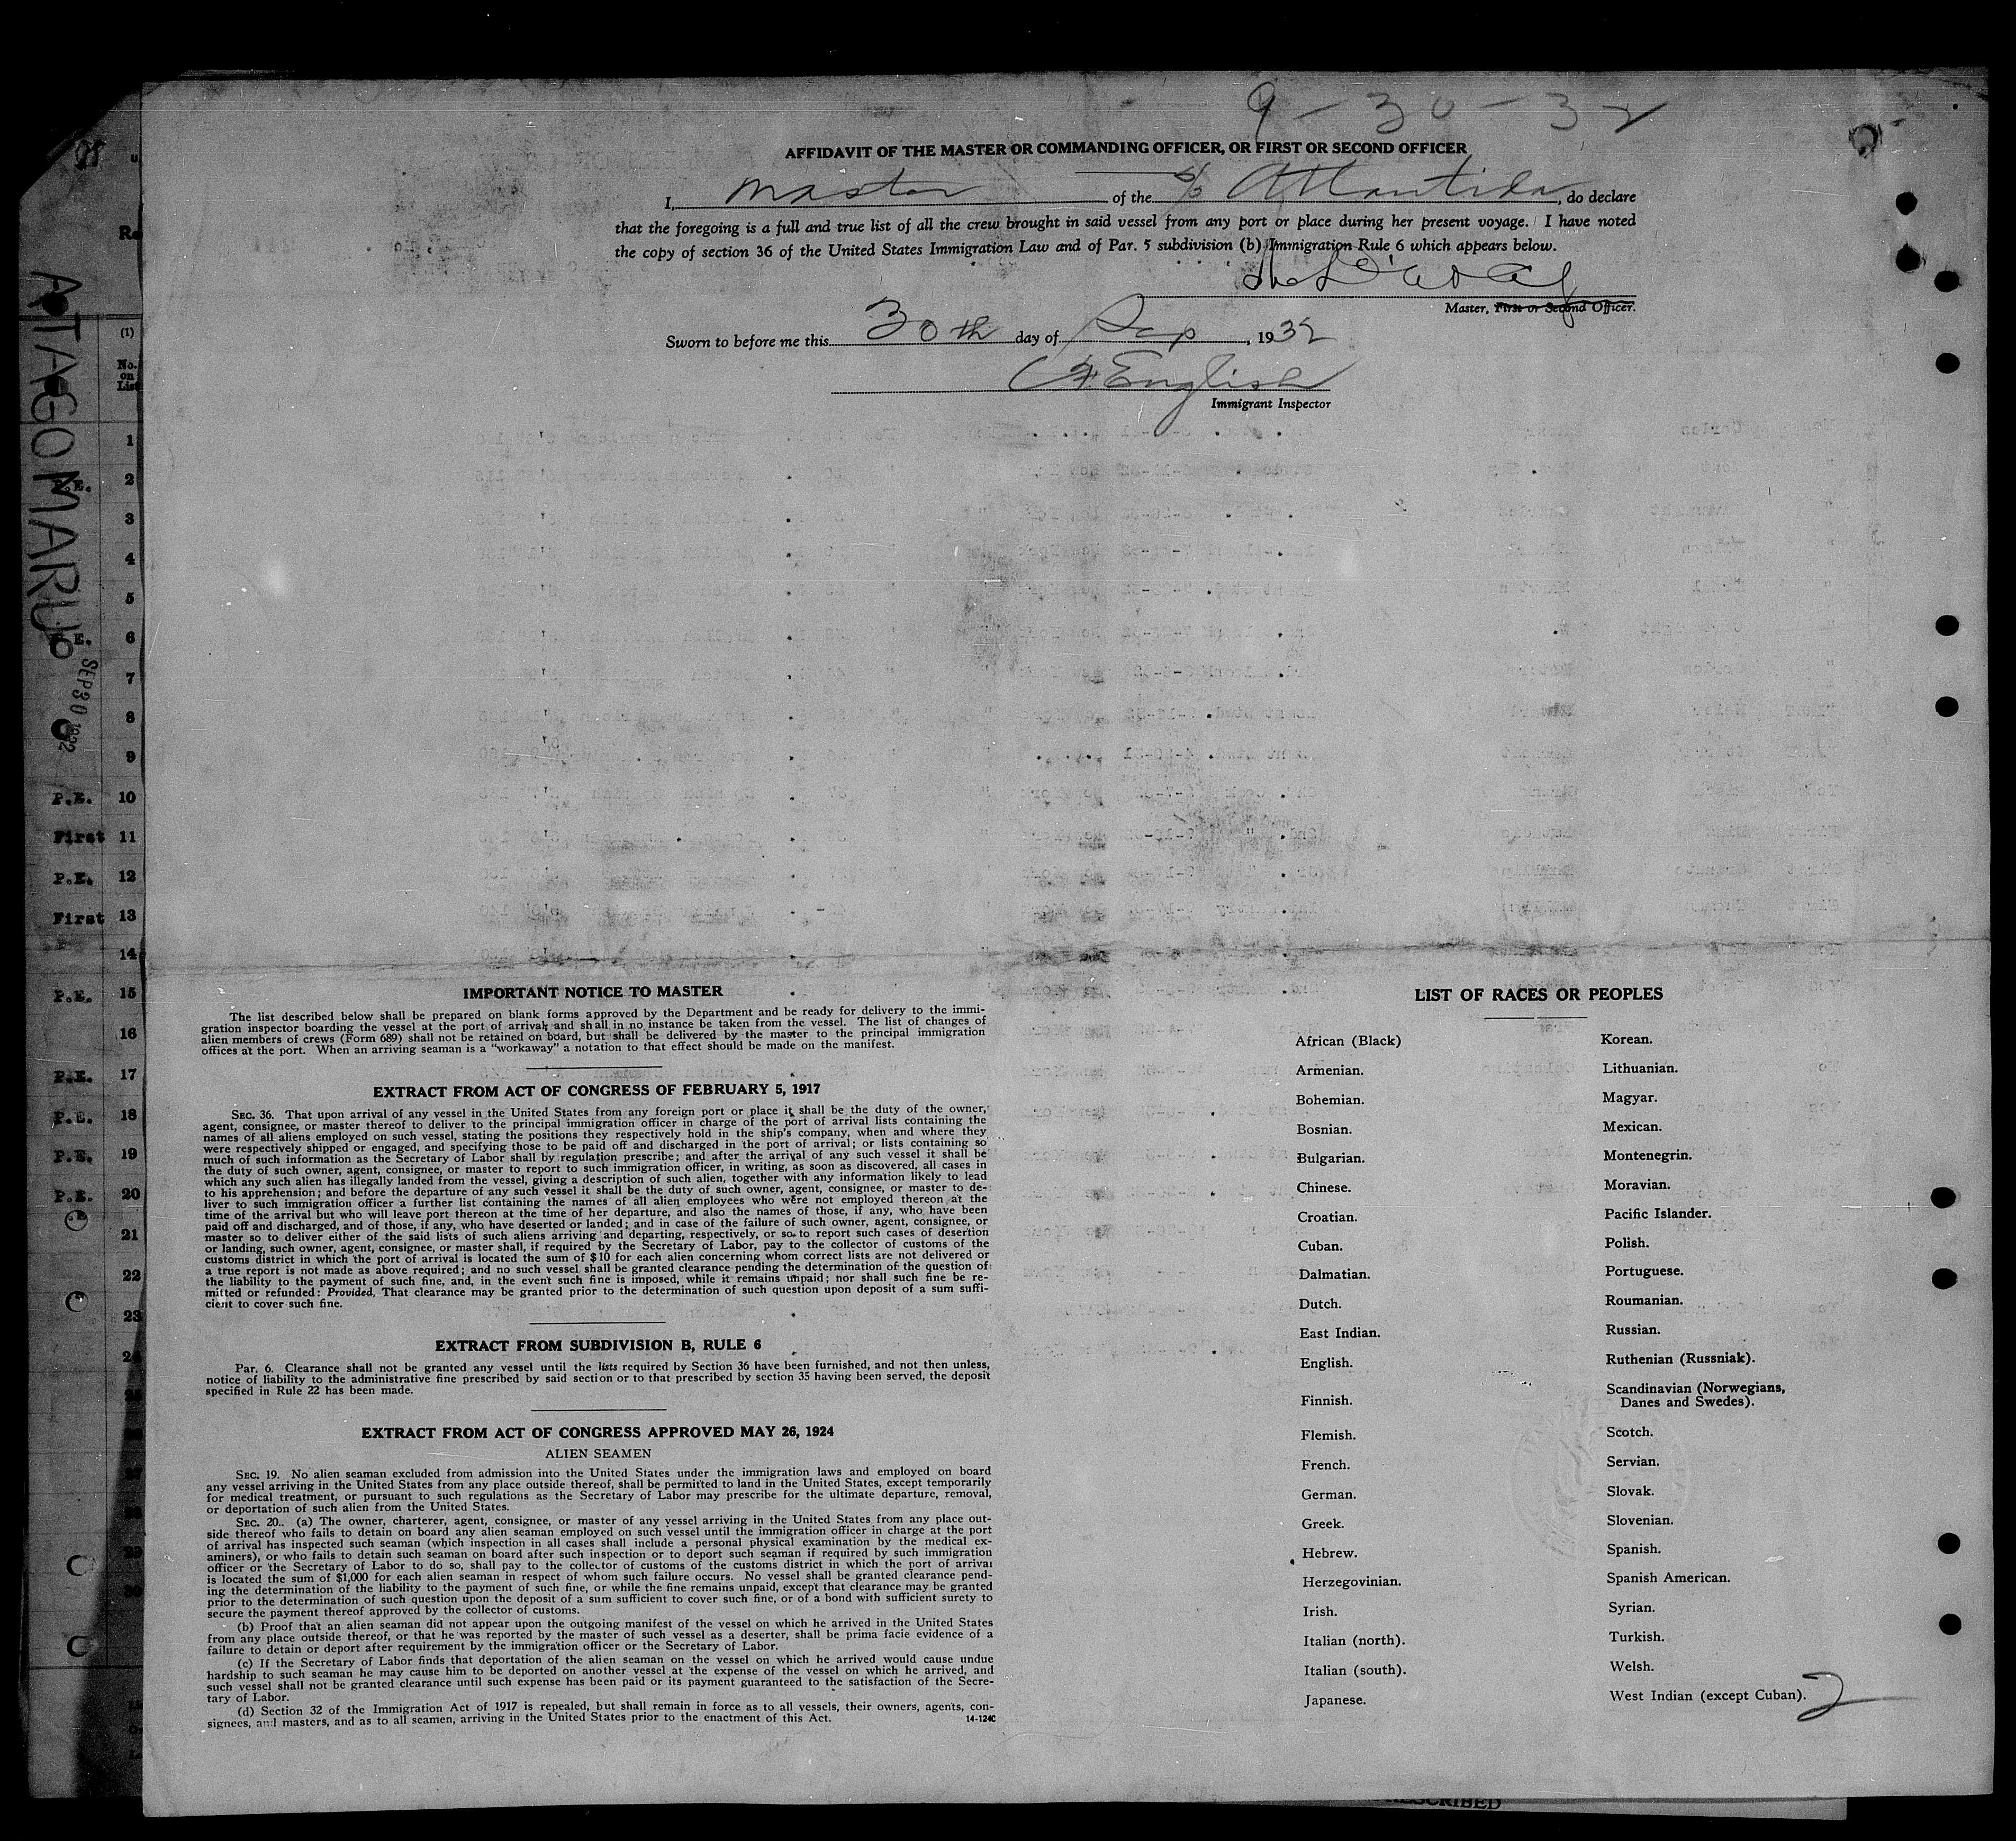 9-30-32
AFFIDAVIT OF THE MASTER OR COMMANDING OFFICER, OR FIRST OR SECOND OFFICER
I, Master of the S/S Atlantida, do declare
that the foregoing is a full and true list of all the crew brought in said vessel from any port or place during her present voyage. I have noted
the copy of section 36 of the United States Immigration Law and of Par. 5 subdivision (b) Immigration Rule 6 which appears below.
Master, First or Second Officer.
Sworn to before me this 30th day of Sep, 1932
English
Immigrant Inspector
ATAGO MARU
SEP 30 1932
(1)
No. on List
1
P.E. 2
3
4
5
P.E. 6
7
8
9
P.E. 10
First 11
P.E. 12
First 13
14
P.E. 15
16
P.E. 17
P.E. 18
P.E. 19
P.E. 20
21
22
23
24
IMPORTANT NOTICE TO MASTER
The list described below shall be prepared on blank forms approved by the Department and be ready for delivery to the immi-
gration inspector boarding the vessel at the port of arrival, and shall in no instance be taken from the vessel. The list of changes of
alien members of crews (Form 689) shall not be retained on board, but shall be delivered by the master to the principal immigration
offices at the port. When an arriving seaman is a "workaway" a notation to that effect should be made on the manifest.
EXTRACT FROM ACT OF CONGRESS OF FEBRUARY 5, 1917
SEC. 36. That upon arrival of any vessel in the United States from any foreign port or place it shall be the duty of the owner,
agent, consignee, or master thereof to deliver to the principal immigration officer in charge of the port of arrival lists containing the
names of all aliens employed on such vessel, stating the positions they respectively hold in the ship's company, when and where they
were respectively shipped or engaged, and specifying those to be paid off and discharged in the port of arrival; or lists containing so
much of such information as the Secretary of Labor shall by regulation prescribe; and after the arrival of any such vessel it shall be
the duty of such owner, agent, consignee, or master to report to such immigration officer, in writing, as soon as discovered, all cases in
which any such alien has illegally landed from the vessel, giving a description of such alien, together with any information likely to lead
to his apprehension; and before the departure of any such vessel it shall be the duty of such owner, agent, consignee, or master to de-
liver to such immigration officer a further list containing the names of all alien employees who were not employed thereon at the
time of the arrival but who will leave port thereon at the time of her departure, and also the names of those, if any, who have been
paid off and discharged, and of those, if any, who have deserted or landed; and in case of the failure of such owner, agent, consignee, or
master so to deliver either of the said lists of such aliens arriving and departing, respectively, or so to report such cases of desertion
or landing, such owner, agent, consignee, or master shall, if required by the Secretary of Labor, pay to the collector of customs of the
customs district in which the port of arrival is located the sum of $10 for each alien concerning whom correct lists are not delivered or
a true report is not made as above required; and no such vessel shall be granted clearance pending the determination of the question of
the liability to the payment of such fine, and, in the event such fine is imposed, while it remains unpaid; nor shall such fine be re-
mitted or refunded: Provided, That clearance may be granted prior to the determination of such question upon deposit of a sum suffi-
cient to cover such fine.
EXTRACT FROM SUBDIVISION B, RULE 6
Par. 6. Clearance shall not be granted any vessel until the lists required by Section 36 have been furnished, and not then unless,
notice of liability to the administrative fine prescribed by said section or to that prescribed by section 35 having been served, the deposit
specified in Rule 22 has been made.
EXTRACT FROM ACT OF CONGRESS APPROVED MAY 26, 1924
ALIEN SEAMEN
SEC. 19. No alien seaman excluded from admission into the United States under the immigration laws and employed on board
any vessel arriving in the United States from any place outside thereof, shall be permitted to land in the United States, except temporarily
for medical treatment, or pursuant to such regulations as the Secretary of Labor may prescribe for the ultimate departure, removal,
or deportation of such alien from the United States.
SEC. 20. (a) The owner, charterer, agent, consignee, or master of any vessel arriving in the United States from any place out-
side thereof who fails to detain on board any alien seaman employed on such vessel until the immigration officer in charge at the port
of arrival has inspected such seaman (which inspection in all cases shall include a personal physical examination by the medical ex-
aminers), or who fails to detain such seaman on board after such inspection or to deport such seaman if required by such immigration
officer or the Secretary of Labor to do so, shall pay to the collector of customs of the customs district in which the port of arrival
is located the sum of $1,000 for each alien seaman in respect of whom such failure occurs. No vessel shall be granted clearance pend-
ing the determination of the liability to the payment of such fine, or while the fine remains unpaid, except that clearance may be granted
prior to the determination of such question upon the deposit of a sum sufficient to cover such fine, or of a bond with sufficient surety to
secure the payment thereof approved by the collector of customs.
(b) Proof that an alien seaman did not appear upon the outgoing manifest of the vessel on which he arrived in the United States
from any place outside thereof, or that he was reported by the master of such vessel as a deserter, shall be prima facie evidence of a
failure to detain or deport after requirement by the immigration officer or the Secretary of Labor.
(c) If the Secretary of Labor finds that deportation of the alien seaman on the vessel on which he arrived would cause undue
hardship to such seaman he may cause him to be deported on another vessel at the expense of the vessel on which he arrived, and
such vessel shall not be granted clearance until such expense has been paid or its payment guaranteed to the satisfaction of the Secre-
tary of Labor.
(d) Section 32 of the Immigration Act of 1917 is repealed, but shall remain in force as to all vessels, their owners, agents, con-
signees, and masters, and as to all seamen, arriving in the United States prior to the enactment of this Act.
14-1240
LIST OF RACES OR PEOPLES
African (Black)
Armenian.
Bohemian.
Bosnian.
Bulgarian.
Chinese.
Croatian.
Cuban.
Dalmatian.
Dutch.
East Indian.
English.
Finnish.
Flemish.
French.
German.
Greek.
Hebrew.
Herzegovinian.
Irish.
Italian (north).
Italian (south).
Japanese.
Korean.
Lithuanian.
Magyar.
Mexican.
Montenegrin.
Moravian.
Pacific Islander.
Polish.
Portuguese.
Roumanian.
Russian.
Ruthenian (Russniak).
Scandinavian (Norwegians,
Danes and Swedes).
Scotch.
Servian.
Slovak.
Slovenian.
Spanish.
Spanish American.
Syrian.
Turkish.
Welsh.
West Indian (except Cuban).
2